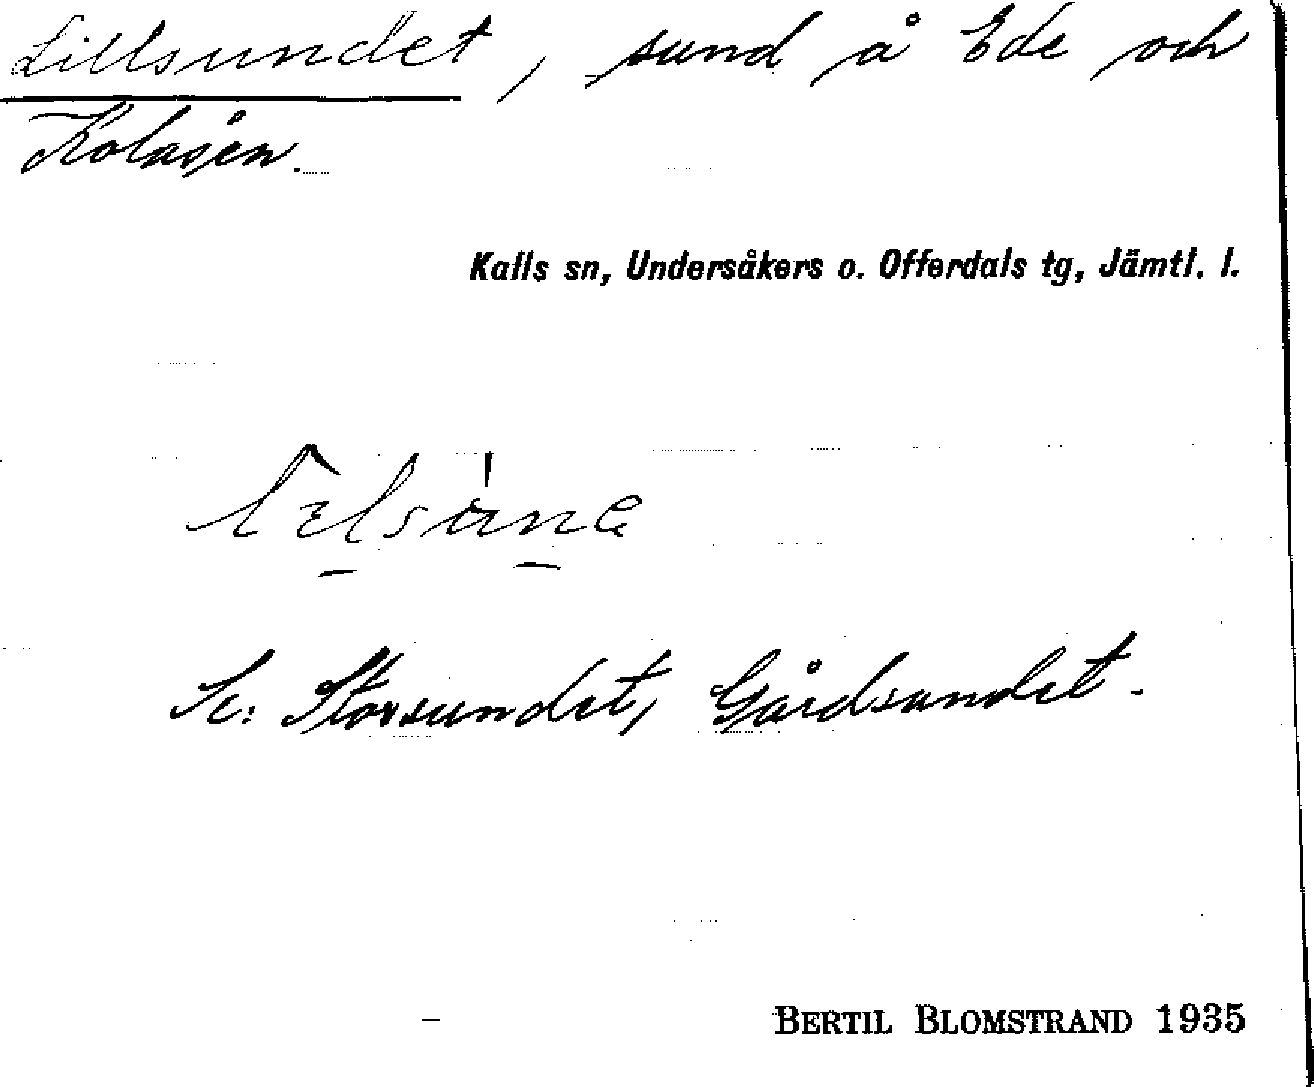 Lillsundet, sund å Ede och
Kolåsen.
Kalls sn, Undersåkers o. Offerdals tg, Jämtl. l.
Se: Storsundet, Gårdsundet.
BERTIL BLOMSTRAND 1935